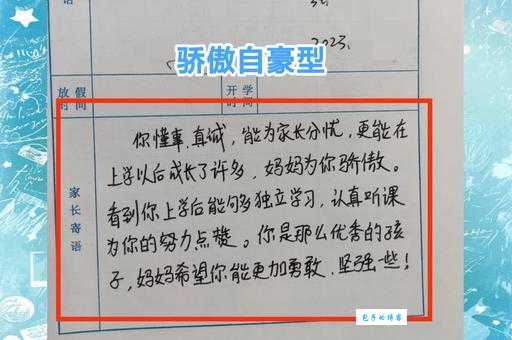 语
2023.
骄傲自豪型
放假时间
开学时间
家长寄语
你懂事、真诚，能为家长分忧，更能在
上学以后成长了许多，妈妈为你骄傲。
看到你上学后能够独立学习，认真听课
为你的努力点赞。你是那么优秀的孩
子，妈妈希望你能更加勇敢、坚强一些！
包子的博客